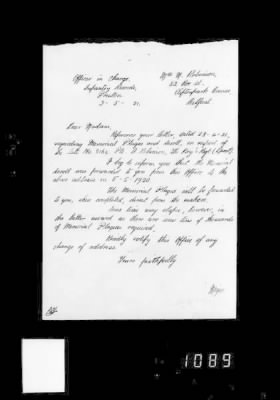 Officer in Charge,
Infantry Records,
Preston
3-5-21.
Mrs M. Robinson,
52
Belfast
Dear Madam,
Reference your letter, dated 28-4-21,
regarding Memorial Plaque and Scroll, in respect of
The King's Regt
I beg to inform you that the Memorial
Scroll was forwarded to you from this Office to the
above address on 5-5-1920
The Memorial Plaque will be forwarded
to you, when completed, direct from the makers.
Some time may elapse, however, in
the latter as there are some tens of thousands
of Memorial Plaques required.
Kindly notify this Office of any
change of address.
Yours faithfully
Major
1089